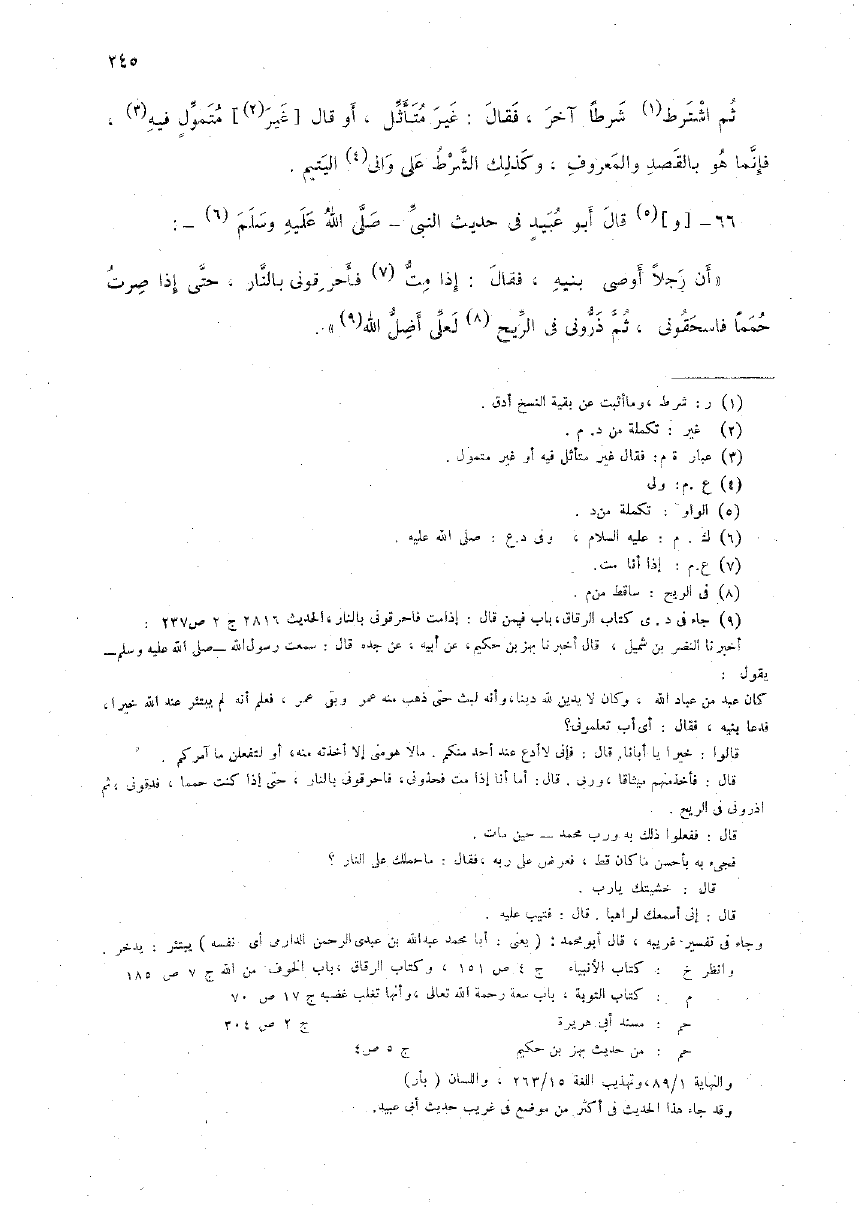 ٢٤٥
ثُم اشْتَرط(١) شَرطاً آخرَ ، فَقالَ : غَيرَ مُتَأَثِّل ، أَو قال [غَيرَ(٢)] مُتَموِّلٍ فيهِ(٣) ،
فَإِنَّما هُو بالقَصدِ والمَعروفِ ، وكَذلِك الشَّرْطُ عَلى وَالى(٤) اليَتيم .
٦٦ـ [و](٥) قالَ أَبو عُبَيدٍ فى حديث النبىِّ ـ صَلَّى اللهُ عَلَيهِ وسَلَمَ (٦) ـ :
« أَن رَجلاً أَوصى بنيهِ ، فقالَ : إِذا مِتُّ (٧) فأَحرقونى بالنَّار ، حتَّى إِذا صِرتُ
حُمَماً فاسحَقُونى ، ثُمَّ ذَرُّونى فى الرِّيح (٨) لَعلِّى أَضِلُّ الله(٩) » .
(١) ر: شرط ،وماأثبت عن بقية النسخ أدق .
(٢) غير : تكملة من د. م .
(٣) عبار ة م: فقال غير متأثل فيه أو غير متمول .
(٤) ع .م: ولى
(٥) الواو : تكملة من د .
(٦) ك . م : عليه السلام ، وفى د.ع : صلى الله عليه .
(٧) ع.م : إذا أنا مت.
(٨) فى الريح : ساقط من م .
(٩) جاء فى د . ى كتاب الرقاق، باب فيمن قال : إذامت فاحرقونى بالنار، الحديث ٢٨١٦ ج ٢ ص ٢٣٧ :
أخبرنا النضر بن شميل ، قال أخبرنا بهز بن حكيم، عن أبيه ، عن جده قال : سمعت رسول الله ـصلى الله عليه وسلم ـ
يقول :
كان عبد من عباد الله ، وكان لا يدين لله دينا، وأنه لبث حتى ذهب منه عمر وبقى عمر ، فعلم أنه لم يبتئر عند الله خيرا،
فدعا بنيه ، فقال : أى أب تعلمونى؟
قالوا : خيرا يا أبانا. قال : فإنى لاأدع عند أحد منكم . مالا هومنى إلا أخذته منه، أو لتفعلن ما آمركم .
قال : فأخذ منهم ميثاقا ،وربى . قال: أما أنا إذا مت فخذونى، فاحرقونى بالنار ، حتى إذا كنت حمما ، فدقونى ،ثم
اذرونى فى الريح .
قال : ففعلوا ذلك به ورب محمد ـ حين مات .
فجىء به بأحسن ماكان قط ، فعرض على ربه ،فقال : ماحملك على النار ؟
قال : خشيتك يارب .
قال : إنى أسمعك لراهبا . قال : فتيب عليه .
وجاء فى تفسير غريبه ، قال أبو محمد : ( يعنى : أبا محمد عبدالله بن عبدى الرحمن الدارمى أى نفسه ) يبتئر : يدخر .
وانظر خ : كتاب الأنبياء ج ٤ ص ١٥١ ، وكتاب الرقاق ،باب الخوف من الله ج ٧ ص ١٨٥
م : كتاب التوبة ، باب سعة رحمة الله تعالى ،وأنها تغلب غضبه ج ١٧ ص ٧٠
حم : مسند أبى هريرة ج ٢ ص ٣٠٤
حم : من حديث بهز بن حكيم ج ٥ ص٤
والنهاية ٨٩/١،وتهذيب اللغة ٢٦٣/١٥ ، واللسان ( بأر)
وقد جاء هذا الحديث فى أكثر من موضع فى غريب حديث أبى عبيد.